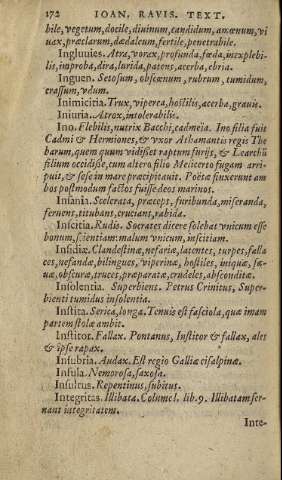 172 IOAN. RAVIS. TEXT.
bile, vegetum, docile, diuinum, candidum, amœnum, vi
uax, præclarum, dædaleum, fertile, penetrabile.
Ingluuies. Atra, vorax, profunda, fœda, inexplebi-
lis, improba, dira, lurida, patens, acerba, ebria.
Inguen. Setosum, obscœnum, rubrum, tumidum,
crassum, vdum.
Inimicitia. Trux, viperea, hostilis, acerba, grauis.
Iniuria. Atrox, intolerabilis.
Ino. Flebilis, nutrix Bacchi, cadmeia. Ino filia fuit
Cadmi & Hermiones, & vxor Athamantis regis The
barum, quem quum vidisset raptum furijs, & Learchũ
filium occidisse, cum altero filio Melicerto fugam arri-
puit, & sese in mare præcipitauit. Poëtæ finxerunt am
bos postmodum factos fuisse deos marinos.
Insania. Scelerata, præceps, furibunda, miseranda,
feruens, titubans, crucians, rabida.
Inscitia. Rudis. Socrates dicere solebat vnicum esse
bonum, scientiam: malum vnicum, inscitiam.
Insidiæ. Clandestinæ, nefariæ, latentes, turpes, falla
ces, nefandæ, bilingues, viperinæ, hostiles, iniquæ, sæ-
uæ, obscuræ, truces, præparatæ, crudeles, absconditæ.
Insolentia. Superbiens. Petrus Crinitus, Super-
bienti tumidus insolentia.
Instita. Serica, longa. Tenuis est fasciola, quæ imam
partem stolæ ambit.
Institor. Fallax. Pontanus, Institor & fallax, ales
& ipse rapax.
Insubria. Audax. Est regio Galliæ cisalpinæ.
Insula. Nemorosa, saxosa.
Insultus. Repentinus, subitus.
Integritas. Illibata. Columel. lib. 9. Illibatam ser-
uant integritatem.
Inte-